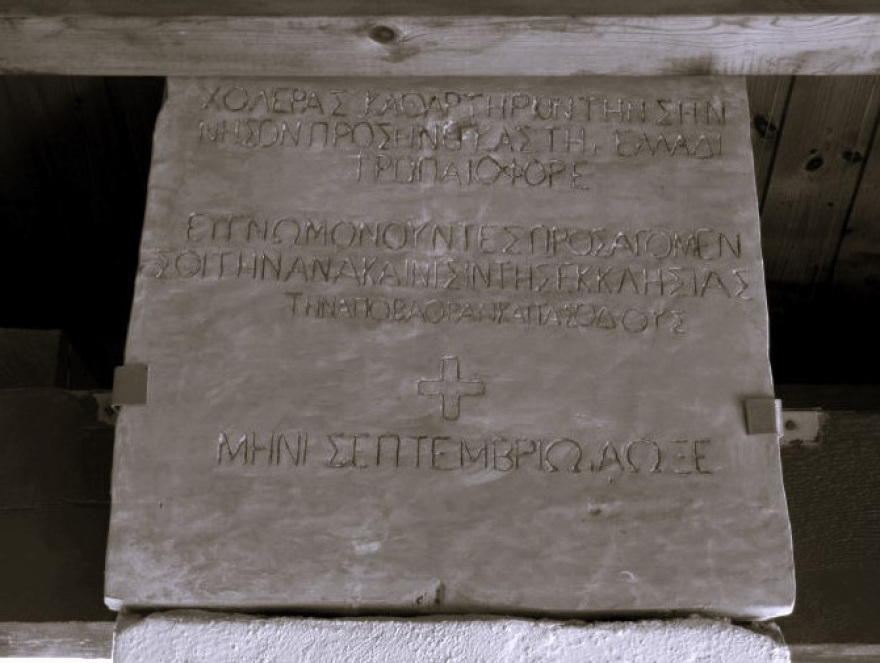 ΧΟΛΕΡΑΣ ΚΑΘΑΡΤΗΡΙΟΝ ΤΗΝ ΣΗΝ
ΝΗΣΟΝ ΠΡΟΣΗΝΕΓΚΑΣ ΤΗ, ΕΛΛΑΔΙ
ΤΡΟΠΑΙΟΦΟΡΕ
ΕΥΓΝΩΜΟΝΟΥΝΤΕΣ ΠΡΟΣΑΓΟΜΕΝ
ΣΟΙ ΤΗΝ ΑΝΑΚΑΙΝΙΣΙΝ ΤΗΣ ΕΚΚΛΗΣΙΑΣ
ΤΗΝ ΑΠΟΒΑΘΡΑΝ ΚΑΙ ΤΑΣ ΟΔΟΥΣ
ΜΗΝΙ ΣΕΠΤΕΜΒΡΙΩ, ΑΩΞΕ